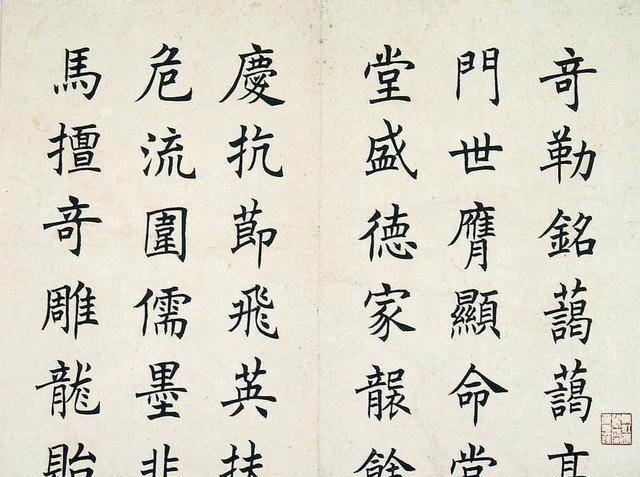 竒勒銘藹藹
門世膺顯命堂
堂盛德家襲餘
慶抗莭飛英扶
危流圍儒墨非
馬擅竒雕龍貽